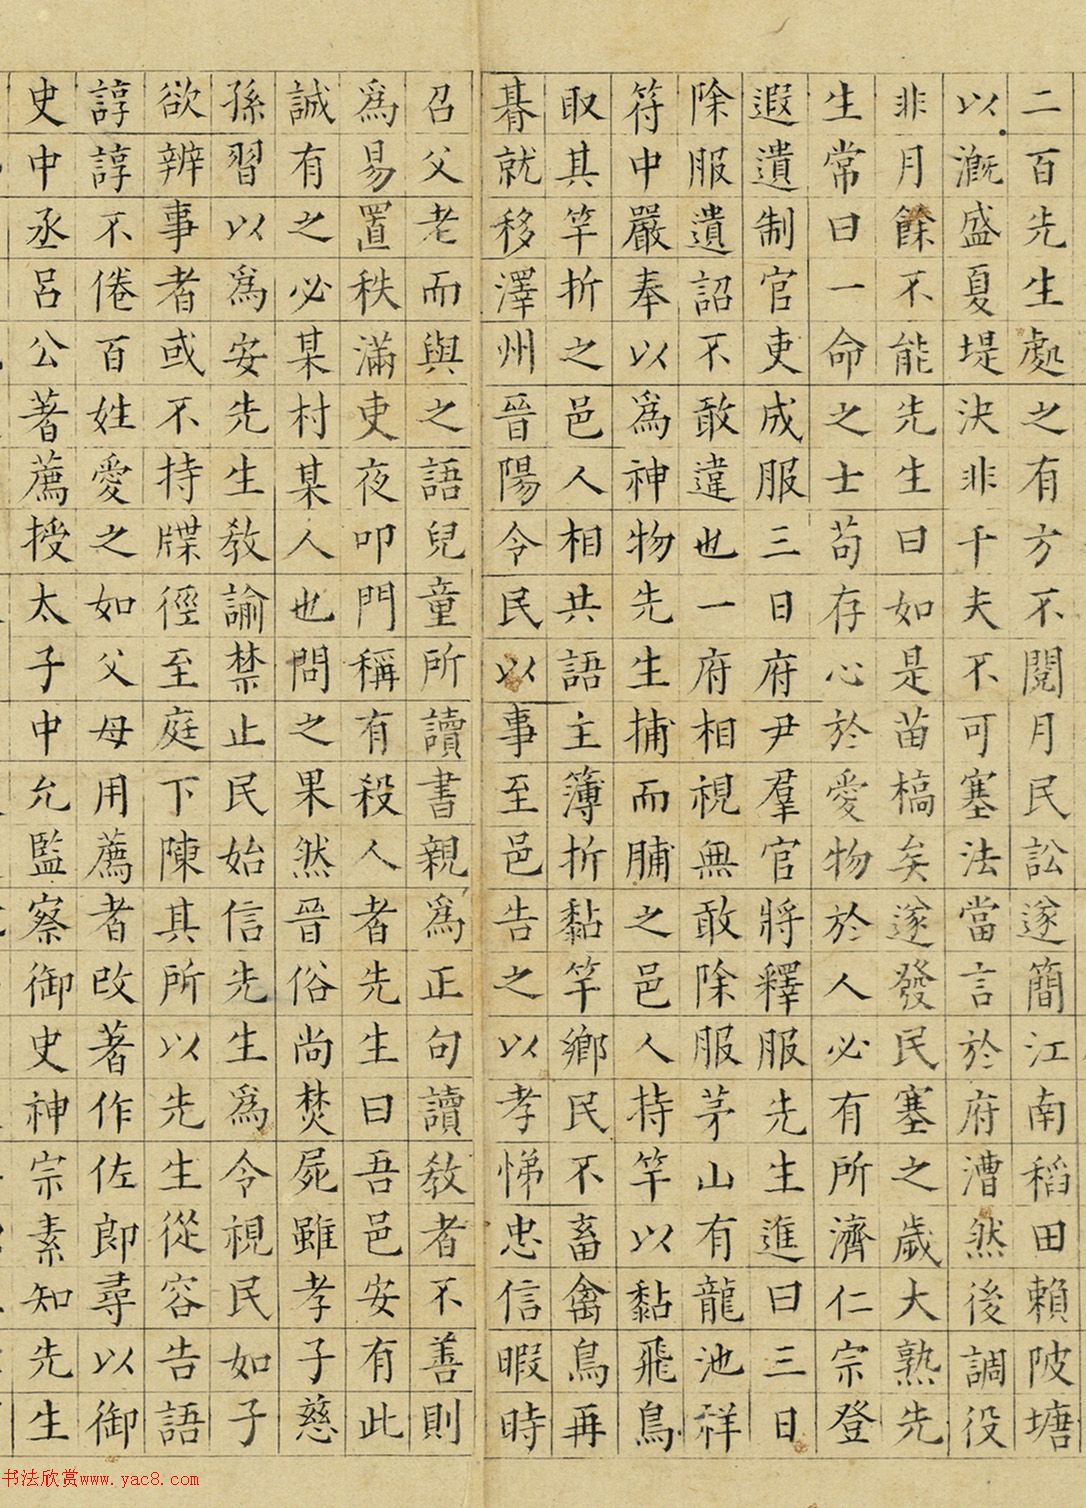 二百先生處之有方不閱月民訟遂簡江南稻田賴陂塘
以溉盛夏堤決非千夫不可塞法當言於府漕然後調役
非月餘不能先生曰如是苗槁矣遂發民塞之歲大熟先
生常曰一命之士苟存心於愛物於人必有所濟仁宗登
遐遺制官吏成服三日府尹羣官將釋服先生進曰三日
除服遺詔不敢違也一府相視無敢除服茅山有龍池祥
符中嚴奉以為神物先生捕而脯之邑人持竿以黏飛鳥
取其竿折之邑人相共語主簿折黏竿鄉民不畜禽鳥再
朞就移澤州晉陽令民以事至邑告之以孝悌忠信暇時
召父老而與之語兒童所讀書親為正句讀教者不善則
為易置秩滿吏夜叩門稱有殺人者先生曰吾邑安有此
誠有之必某村某人也問之果然晉俗尚焚屍雖孝子慈
孫習以為安先生教諭禁止民始信先生為令視民如子
欲辨事者或不持牒徑至庭下陳其所以先生從容告語
諄諄不倦百姓愛之如父母用薦者改著作佐郎尋以御
史中丞呂公著薦授太子中允監察御史神宗素知先生
书法欣赏www.yac8.com